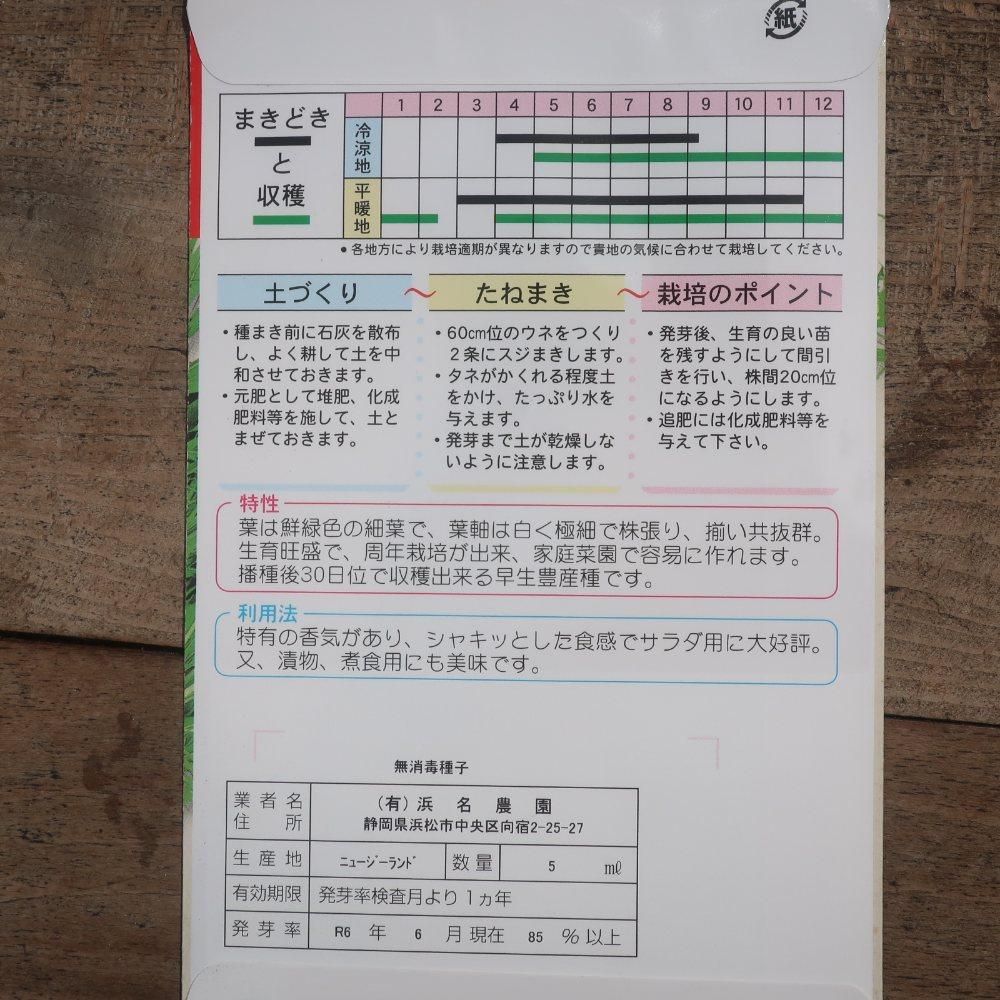 紙
まきどき
と
収穫
1 2 3 4 5 6 7 8 9 10 11 12
冷涼地
平暖地
●各地方により栽培適期が異なりますので貴地の気候に合わせて栽培してください。
土づくり ～ たねまき ～ 栽培のポイント
・種まき前に石灰を散布
し、よく耕して土を中
和させておきます。
・元肥として堆肥、化成
肥料等を施して、土と
まぜておきます。
・60cm位のウネをつくり
２条にスジまきします。
・タネがかくれる程度土
をかけ、たっぷり水を
与えます。
・発芽まで土が乾燥しな
いように注意します。
・発芽後、生育の良い苗
を残すようにして間引
きを行い、株間20cm位
になるようにします。
・追肥には化成肥料等を
与えて下さい。
特性
葉は鮮緑色の細葉で、葉軸は白く極細で株張り、揃い共抜群。
生育旺盛で、周年栽培が出来、家庭菜園で容易に作れます。
播種後30日位で収穫出来る早生豊産種です。
利用法
特有の香気があり、シャキッとした食感でサラダ用に大好評。
又、漬物、煮食用にも美味です。
無消毒種子
業者名 (有)浜名農園
住所 静岡県浜松市中央区向宿2-25-27
生産地 ﾆｭｰｼﾞｰﾗﾝﾄﾞ 数量 5 ml
有効期限 発芽率検査月より１ヵ年
発芽率 R6 年 6 月現在 85 %以上